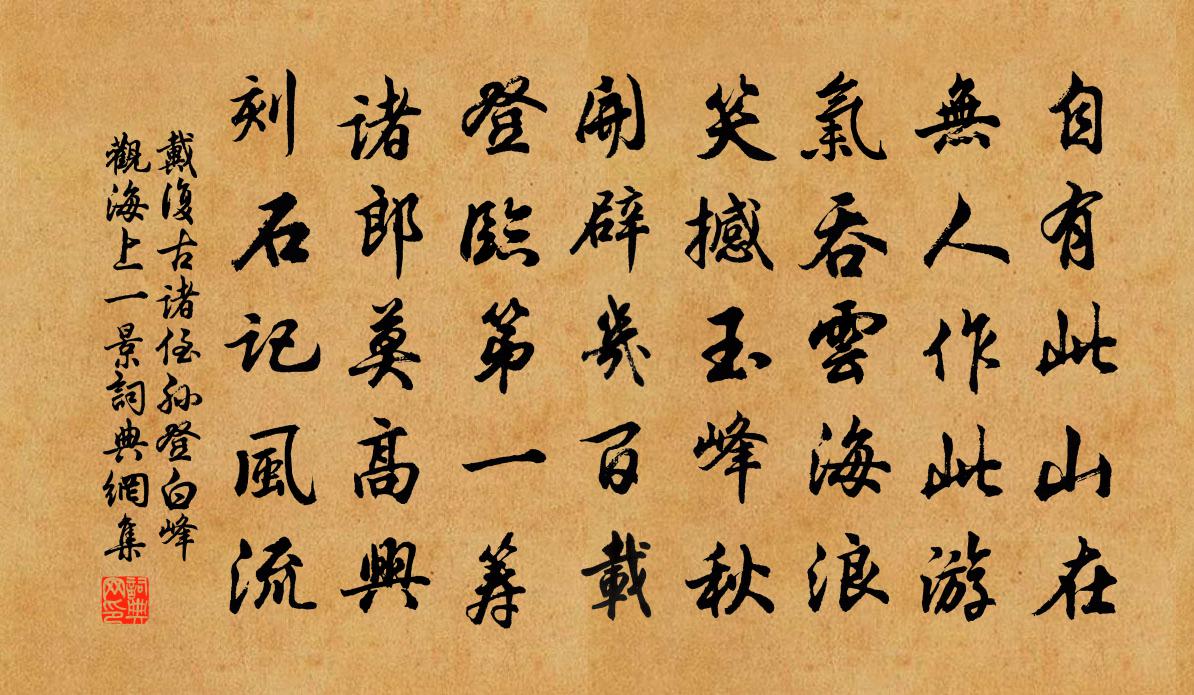 自有此山在
無人作此游
氣吞雲海浪
笑撼玉峰秋
開辟幾百載
登臨第一籌
諸郎莫高興
刻石記風流
戴復古諸侄孙登白峰
觀海上一景詞典網集
詞典网印